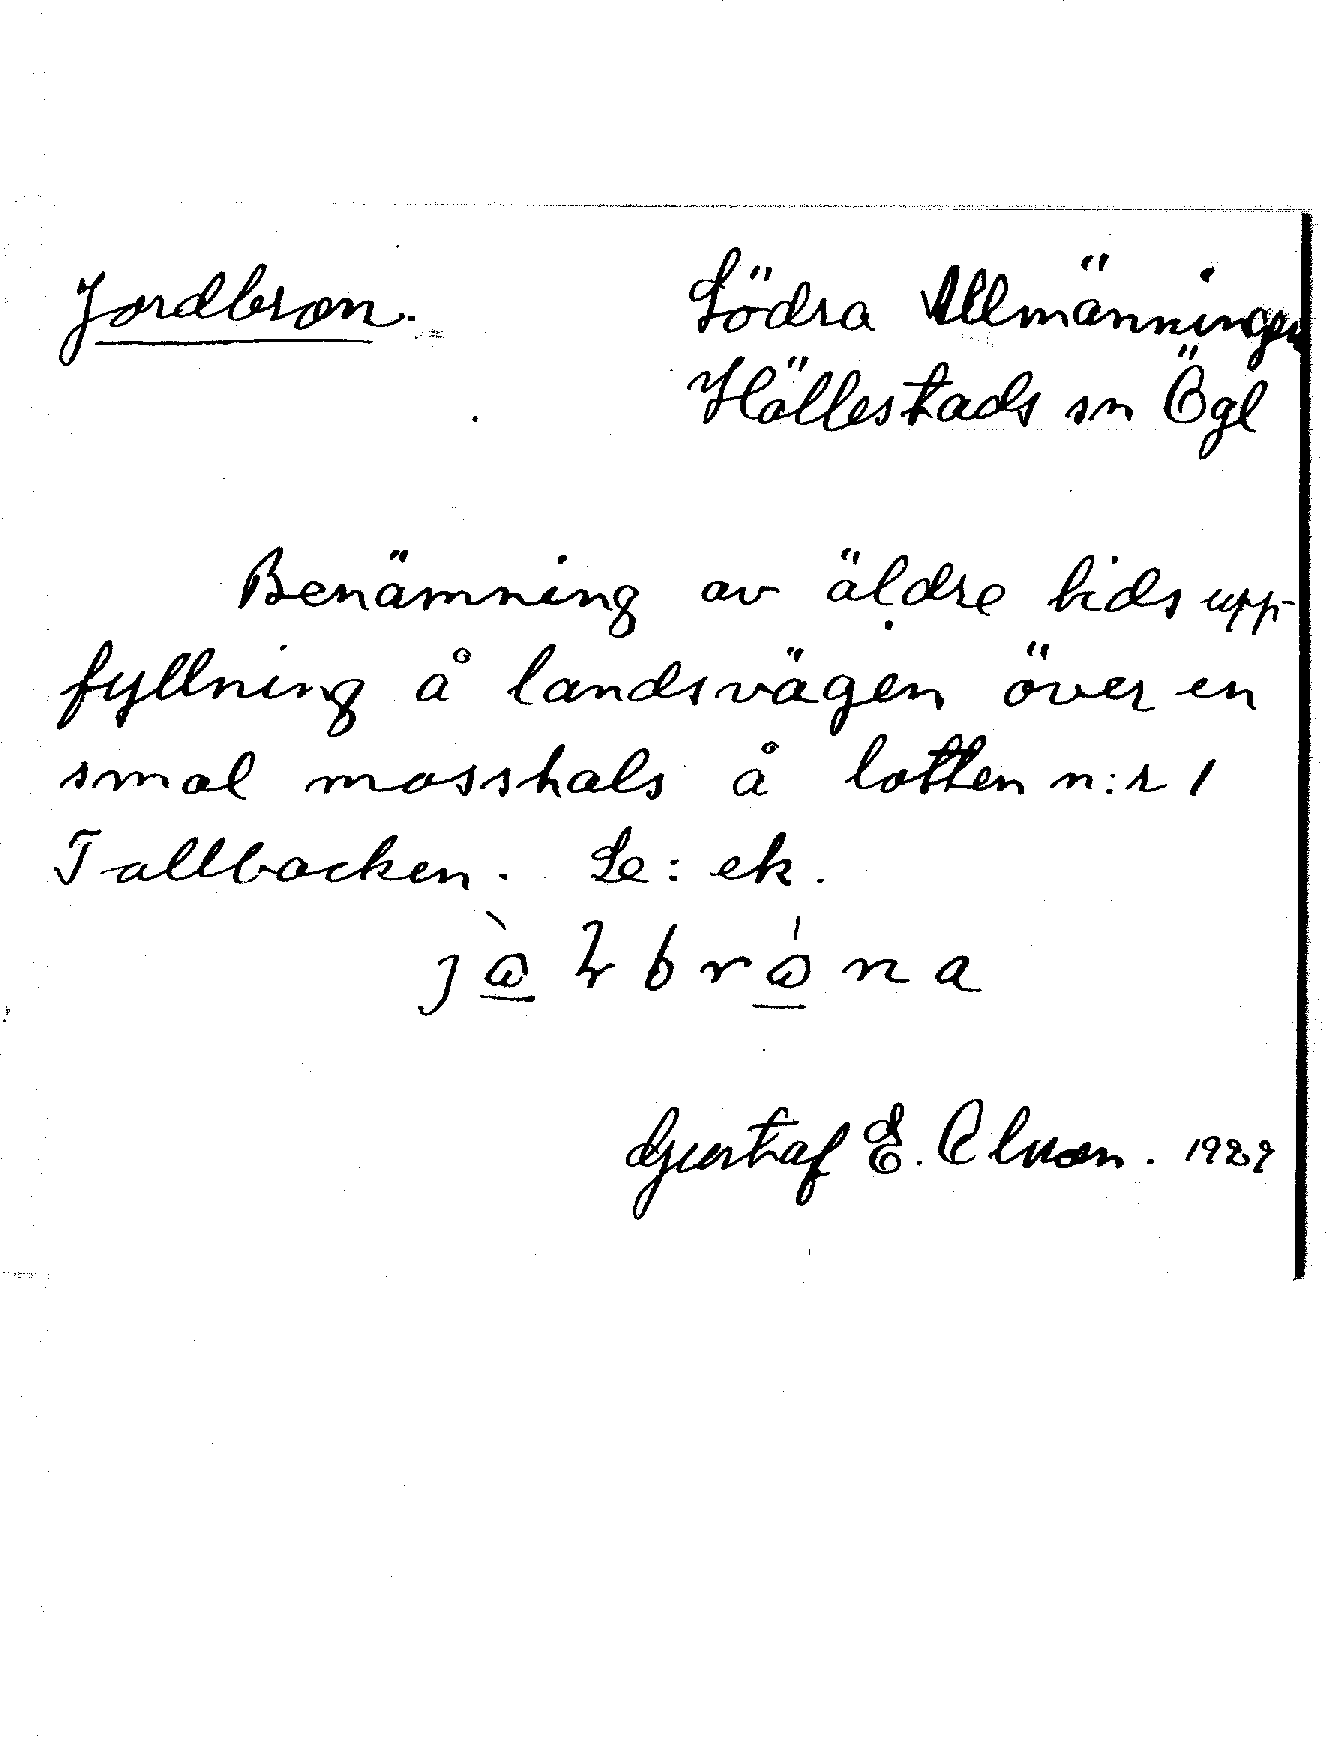 Jordbron. Södra Allmänningen
Hällestads sn Ögl
Benämning av äldre tids upp-
fyllning å landsvägen över en
smal mosshals å lotten n:r 1
Tallbacken. Se: ek.
Gustaf E. 1929